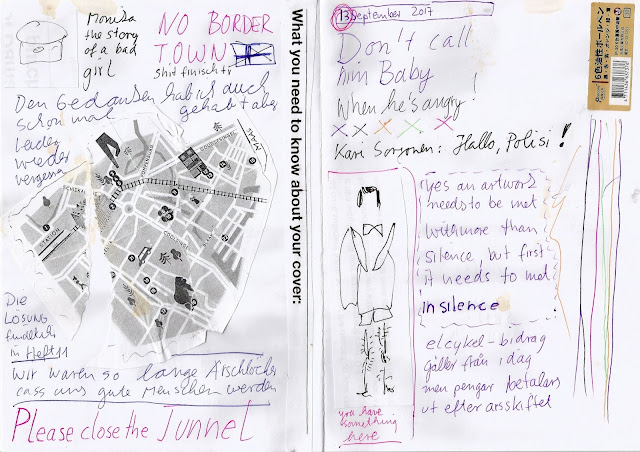 Monika
the story
of a bad
girl
NO BORDER
TOWN
Den Gedanken hab ich auch
schon mal gehabt aber
leider
wieder
vergessen
MAAS
Die
LÖSUNG
in Heft 11
Wir waren so lange Arschlöcher
lass uns gute Menschen werden
Please close the Tunnel
What you need to know about your cover:
13 September 2017
Don't call
him Baby
When he's angry!
Kari Sorjonen: Hallo, Polisi!
yes an artwork
needs to be met
with more than
silence, but first
it needs to met
in silence
elcykel-bidrag
gäller från idag
men pengar betalars
ut efter arsskiftet
you have
something
here
6色油性ボールペン